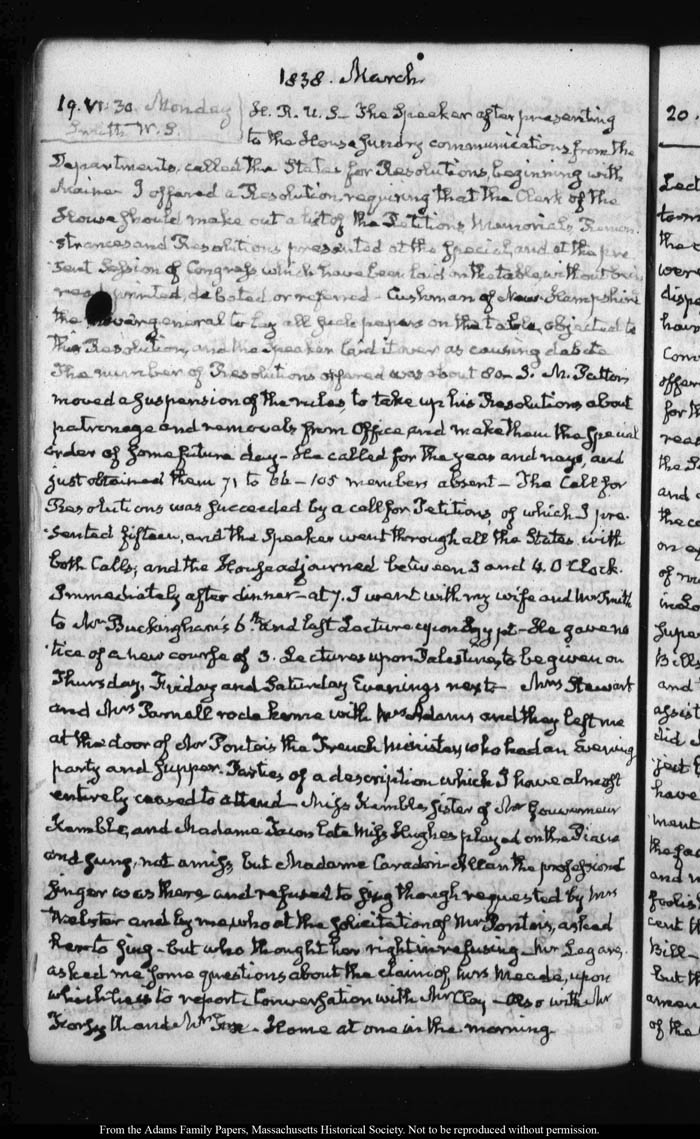 1838. March.
19. VI: 30. Monday
Smith W. S.
H. R. U. S. The Speaker after presenting
to the House sundry communications from the
Departments, called the States for Resolutions, beginning with
Maine. I offered a Resolution, requiring that the Clerk of the
House should make out a list of the Petitions Memorials, Remon-
-strances and Resolutions presented at the Special, and at the pre-
-sent Session of Congress which have been laid on the table, without being
read, printed, debated or referred - Cushman of New-Hampshire
the general to lay all such papers on the table, objected to
this Resolution, and the Speaker laid it over as causing debate
The number of Resolutions offered was about 80. J. M. Patton
moved a suspension of the rules, to take up his Resolutions about
patronage and removals from Office, and make them the special
order of some future day - He called for the yeas and nays, and
just obtained them 71 to 66 - 105 members absent - The Call for
Resolutions was succeeded by a call for Petitions, of which I pre-
-sented fifteen, and the Speaker went through all the States with
both Calls; and the House adjourned between 3 and 4. O'Clock.
Immediately after dinner - at 7. I went with my wife and Mrs Smith
to Mr Buckingham's 6th and last Lecture upon Egypt - He gave no-
-tice of a new course of 3. Lectures upon Palestine, to be given on
Thursday, Friday and Saturday Evenings next - Mrs Stewart
and Mrs Parnell rode home with Mrs Adams and they left me
at the door of Mr Pontois the French Minister, who had an Evening
party and supper. Parties of a description which I have almost
entirely ceased to attend - Miss Kemble, sister of Mr Gouverneur
Kemble, and Madame late Miss Hughes played on the Piano
and sung, not amiss, but Madame Caradori-Allan the professional
singer was there and refused to sing though requested by Mrs
Webster and by me, who at the solicitation of Mr Pontois, asked
her to sing - but who thought her right in refusing - Mr Legare,
asked me some questions about the claim of Mrs Meade, upon
which he is to report. Conversation with Mr Clay - also with Mr
Forsyth and Mr Fox - Home at one in the morning.
20.
Lect
town
the
were
dispo
hour
Com
offer
for th
read
the S
and
the co
on
of
in
supe
Bills
and
assist
did
ject
have
ment
the fac
and
foolis
cent
Bill -
but th
amen
of the
From the Adams Family Papers, Massachusetts Historical Society. Not to be reproduced without permission.